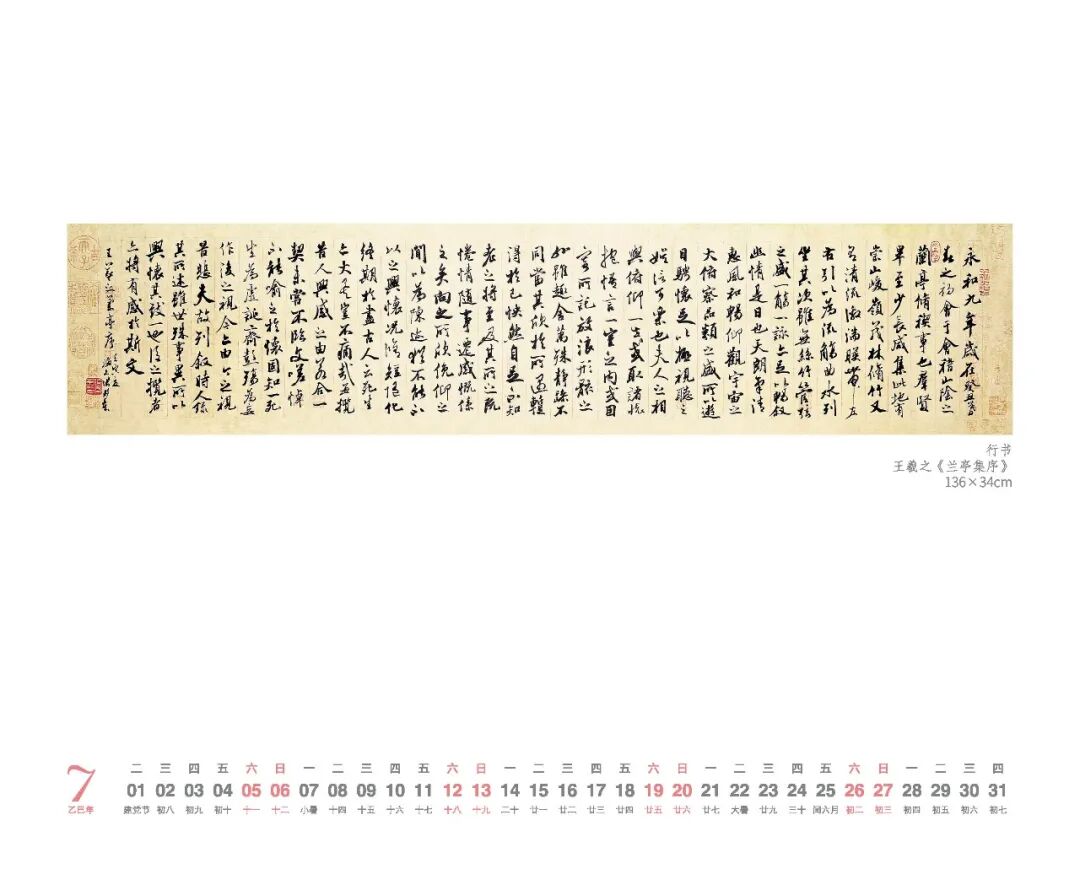 永和九年歲在癸丑暮
春之初會于會稽山陰之
蘭亭脩禊事也羣賢
畢至少長咸集此地有
崇山峻嶺茂林脩竹又
有清流激湍暎帶左
右引以為流觴曲水列
坐其次雖無絲竹管弦
之盛一觴一詠亦足以暢敘
幽情是日也天朗氣清
惠風和暢仰觀宇宙之
大俯察品類之盛所以遊
目騁懷足以極視聽之
娛信可樂也夫人之相
與俯仰一世或取諸懷
抱悟言一室之內或因
寄所託放浪形骸之
外雖趣舍萬殊靜躁不
同當其欣於所遇蹔
得於己快然自足不知
老之將至及其所之既
惓情隨事遷感慨係
之矣向之所欣俛仰之
間以為陳迹猶不能不
以之興懷況脩短隨化
終期於盡古人云死生
亦大矣豈不痛哉每攬
昔人興感之由若合一
契未嘗不臨文嗟悼
不能喻之於懷固知一死
生為虛誕齊彭殤為妄
作後之視今亦由今之視
昔悲夫故列敘時人錄
其所述雖世殊事異所以
興懷其致一也後之攬者
亦將有感於斯文
王羲之蘭亭序
行书
王羲之《兰亭集序》
136×34cm
7
乙巳年
二 三 四 五 六 日 一 二 三 四 五 六 日 一 二 三 四 五 六 日 一 二 三 四 五 六 日 一 二 三 四
01 02 03 04 05 06 07 08 09 10 11 12 13 14 15 16 17 18 19 20 21 22 23 24 25 26 27 28 29 30 31
建党节 初八 初九 初十 十一 十二 小暑 十四 十五 十六 十七 十八 十九 二十 廿一 廿二 廿三 廿四 廿五 廿六 廿七 大暑 廿九 三十 闰六月 初二 初三 初四 初五 初六 初七